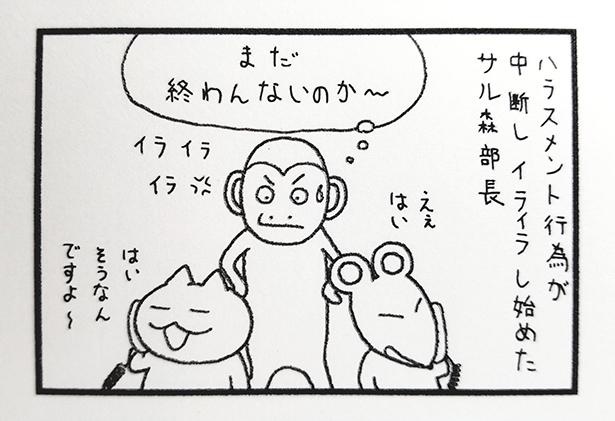 ハラスメント行為が
中断しイライラし始めた
サル森部長
まだ
終わんないのか〜
イライラ
イラ
ええ
はい
はい
そうなん
ですよ〜